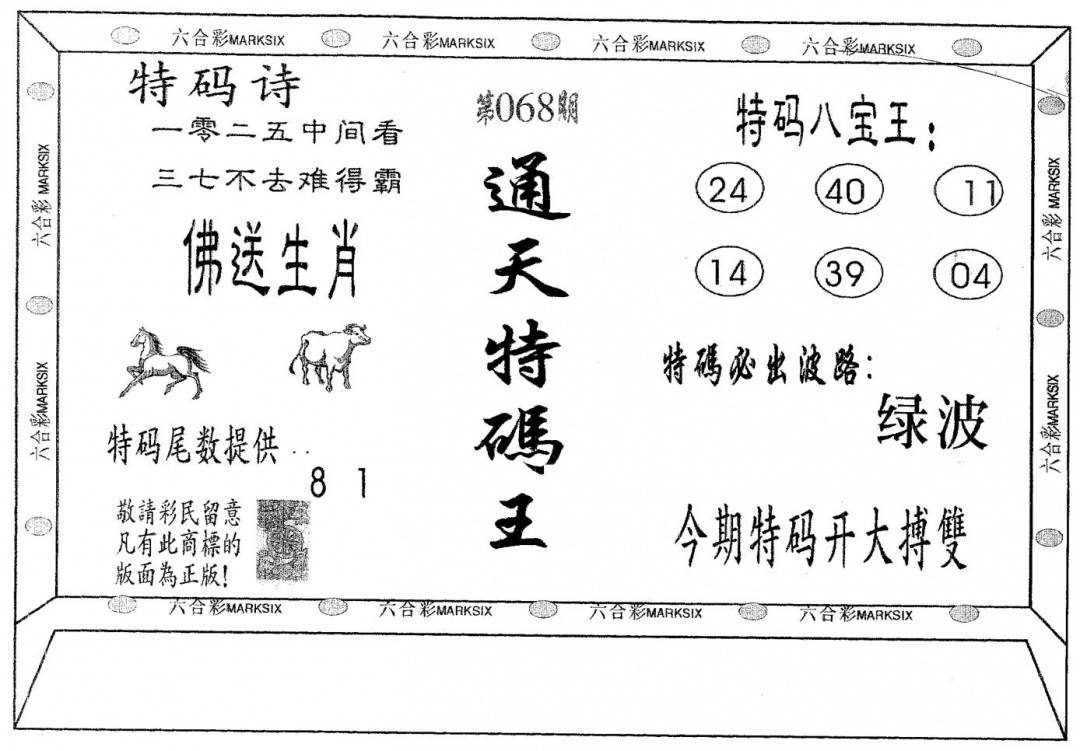 六合彩MARKSIX 六合彩MARKSIX 六合彩MARKSIX 六合彩MARKSIX
六合彩 MARKSIX
六合彩MARKSIX
特码诗
一零二五中间看
三七不去难得霸
佛送生肖
特码尾数提供..
8 1
敬請彩民留意
凡有此商標的
版面為正版!
第068期
通
天
特
碼
王
特码八宝王:
24 40 11
14 39 04
特碼必出波路:
绿波
今期特码开大搏雙
六合彩 MARKSIX
六合彩MARKSIX
六合彩MARKSIX 六合彩MARKSIX 六合彩MARKSIX 六合彩MARKSIX